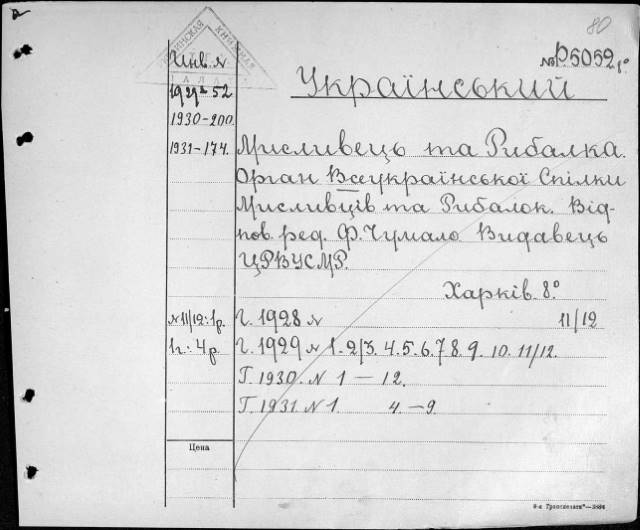 80
УКРАИНСКАЯ КНИЖНАЯ
ПАЛАТА
№ Р5052 8°
Инв. №
Український
1929 - 52
1930-200.
1931-174.
Мисливець та Рибалка.
Орган Всеукраїнської Спілки
Мисливців та Рибалок. Від-
пов. ред. Ф. Чумало Видавець
ЦРВУСМР.
Харків. 8°
№ 11/12: 1 р.
Г. 1928 № 11/12
1 г.: 4 р.
Г. 1929 № 1. 2/3. 4. 5. 6. 7. 8. 9. 10. 11/12.
Г. 1930. № 1 — 12.
Г. 1931. № 1. 4. — 9.
Цена